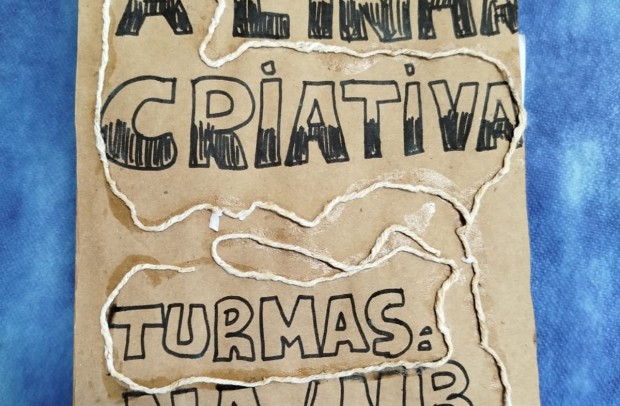 A LINHA
CRIATIVA
TURMAS: